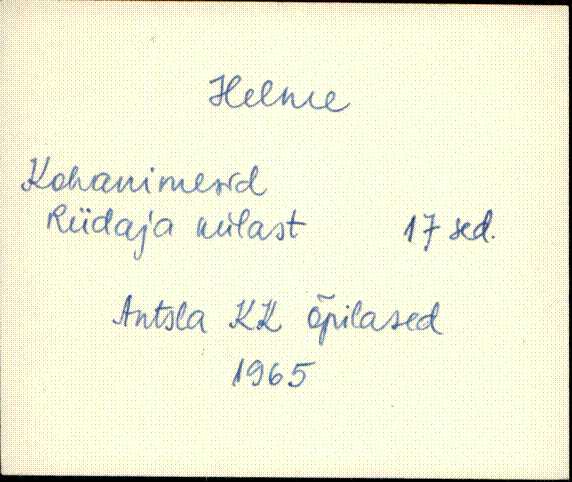 Helme
Kohanimesid
Riidaja külast 17 sed.
Antsla KK õpilased
1965